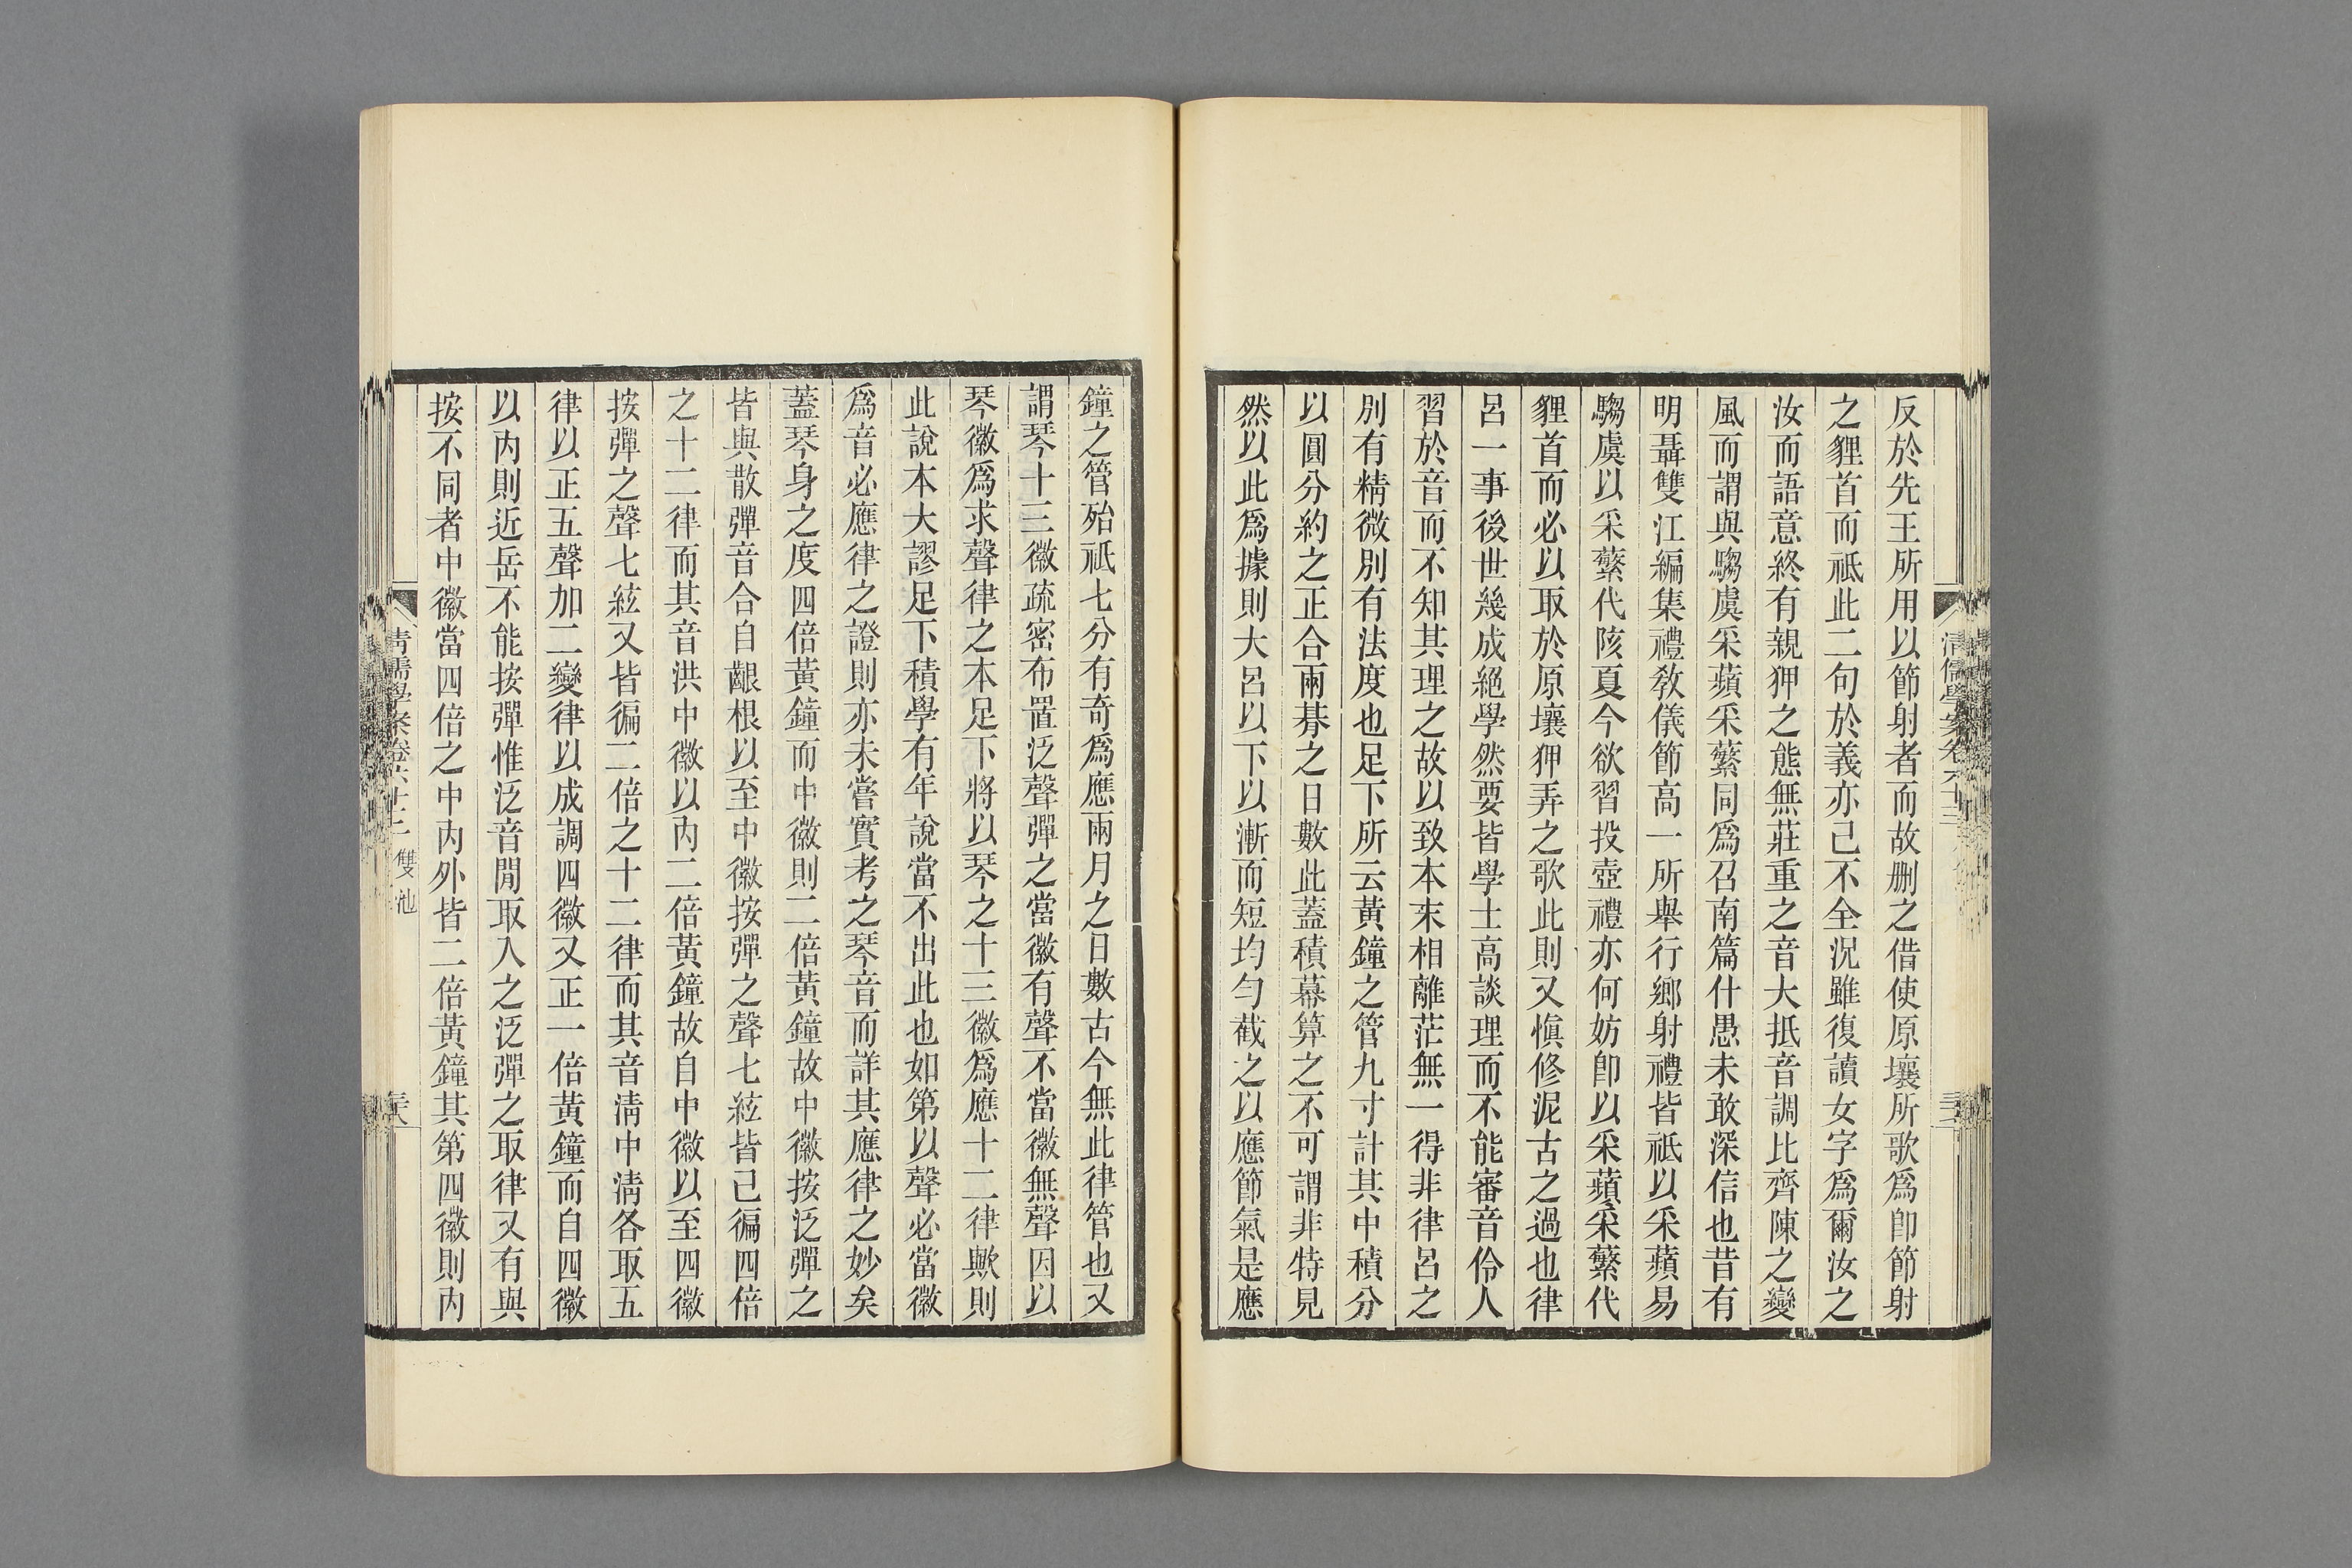 反於先王所用以節射者而故刪之借使原壤所歌爲卽節射
之貍首而祗此二句於義亦已不全況雖復讀女字爲爾汝之
汝而語意終有親狎之態無莊重之音大抵音調比齊陳之變
風而謂與騶虞采蘋采蘩同爲召南篇什愚未敢深信也昔有
明聶雙江編集禮教儀節高一所舉行鄉射禮皆祗以采蘋易
騶虞以采蘩代陔夏今欲習投壺禮亦何妨卽以采蘋采蘩代
貍首而必以取於原壤狎弄之歌此則又愼修泥古之過也律
呂一事後世幾成絕學然要皆學士高談理而不能審音伶人
習於音而不知其理之故以致本末相離茫無一得非律呂之
別有精微別有法度也足下所云黃鐘之管九寸計其中積分
以圓分約之正合兩朞之日數此蓋積幕算之不可謂非特見
然以此爲據則大呂以下以漸而短均勻截之以應節氣是應
鐘之管殆祗七分有奇爲應兩月之日數古今無此律管也又
謂琴十三徽疏密布置泛聲彈之當徽有聲不當徽無聲因以
琴徽爲求聲律之本足下將以琴之十三徽爲應十二律歟則
此說本大謬足下積學有年說當不出此也如第以聲必當徽
爲音必應律之證則亦未嘗實考之琴音而詳其應律之妙矣
蓋琴身之度四倍黃鐘而中徽則二倍黃鐘故中徽按泛彈之
皆與散彈音合自齦根以至中徽按彈之聲七絃皆已徧四倍
之十二律而其音洪中徽以內二倍黃鐘故自中徽以至四徽
按彈之聲七絃又皆徧二倍之十二律而其音淸中淸各取五
律以正五聲加二變律以成調四徽又正一倍黃鐘而自四徽
以內則近岳不能按彈惟泛音閒取入之泛彈之取律又有與
按不同者中徽當四倍之中內外皆二倍黃鐘其第四徽則內
清儒學案卷六十三 雙池